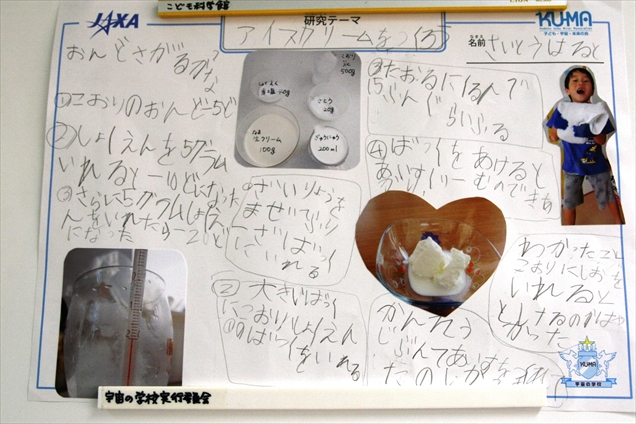 こども科学館
JAXA
研究テーマ
アイスクリームをつくろう
KU-MA
子ども・宇宙・未来の会
名前
さいとうはると
おんどさがるかな
①こおりのおんど-5ど
②しょくえんを5グラム
いれると-10どになった
③さらに5グラムしょくえ
んをいれたら-20ど
になった
しょくえん
食塩
さとう
20g
500g
なま
生クリーム
100g
ぎゅうにゅう
200ml
①ざいりょうを
まぜて
にいれる
②大きい
にこおりしょくえん
いれる
③たおるにくるんで
15ふんぐらいふる
④ばっくをあけると
あいすくりーむのできあ
かんそう
じぶんであいすを
たのしか
わかったこと
こおりにしおを
いれると
とけるのがはや
かった
KU-MA
宇宙の学校
宇宙の学校実行委員会